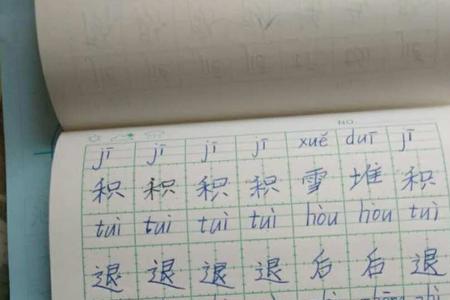 NO.
jī jī jī jī xuě duī jī
积 积 积 积 雪 堆 积
tuì tuì tuì tuì hòu hòu tuì
退 退 退 退 后 后 退